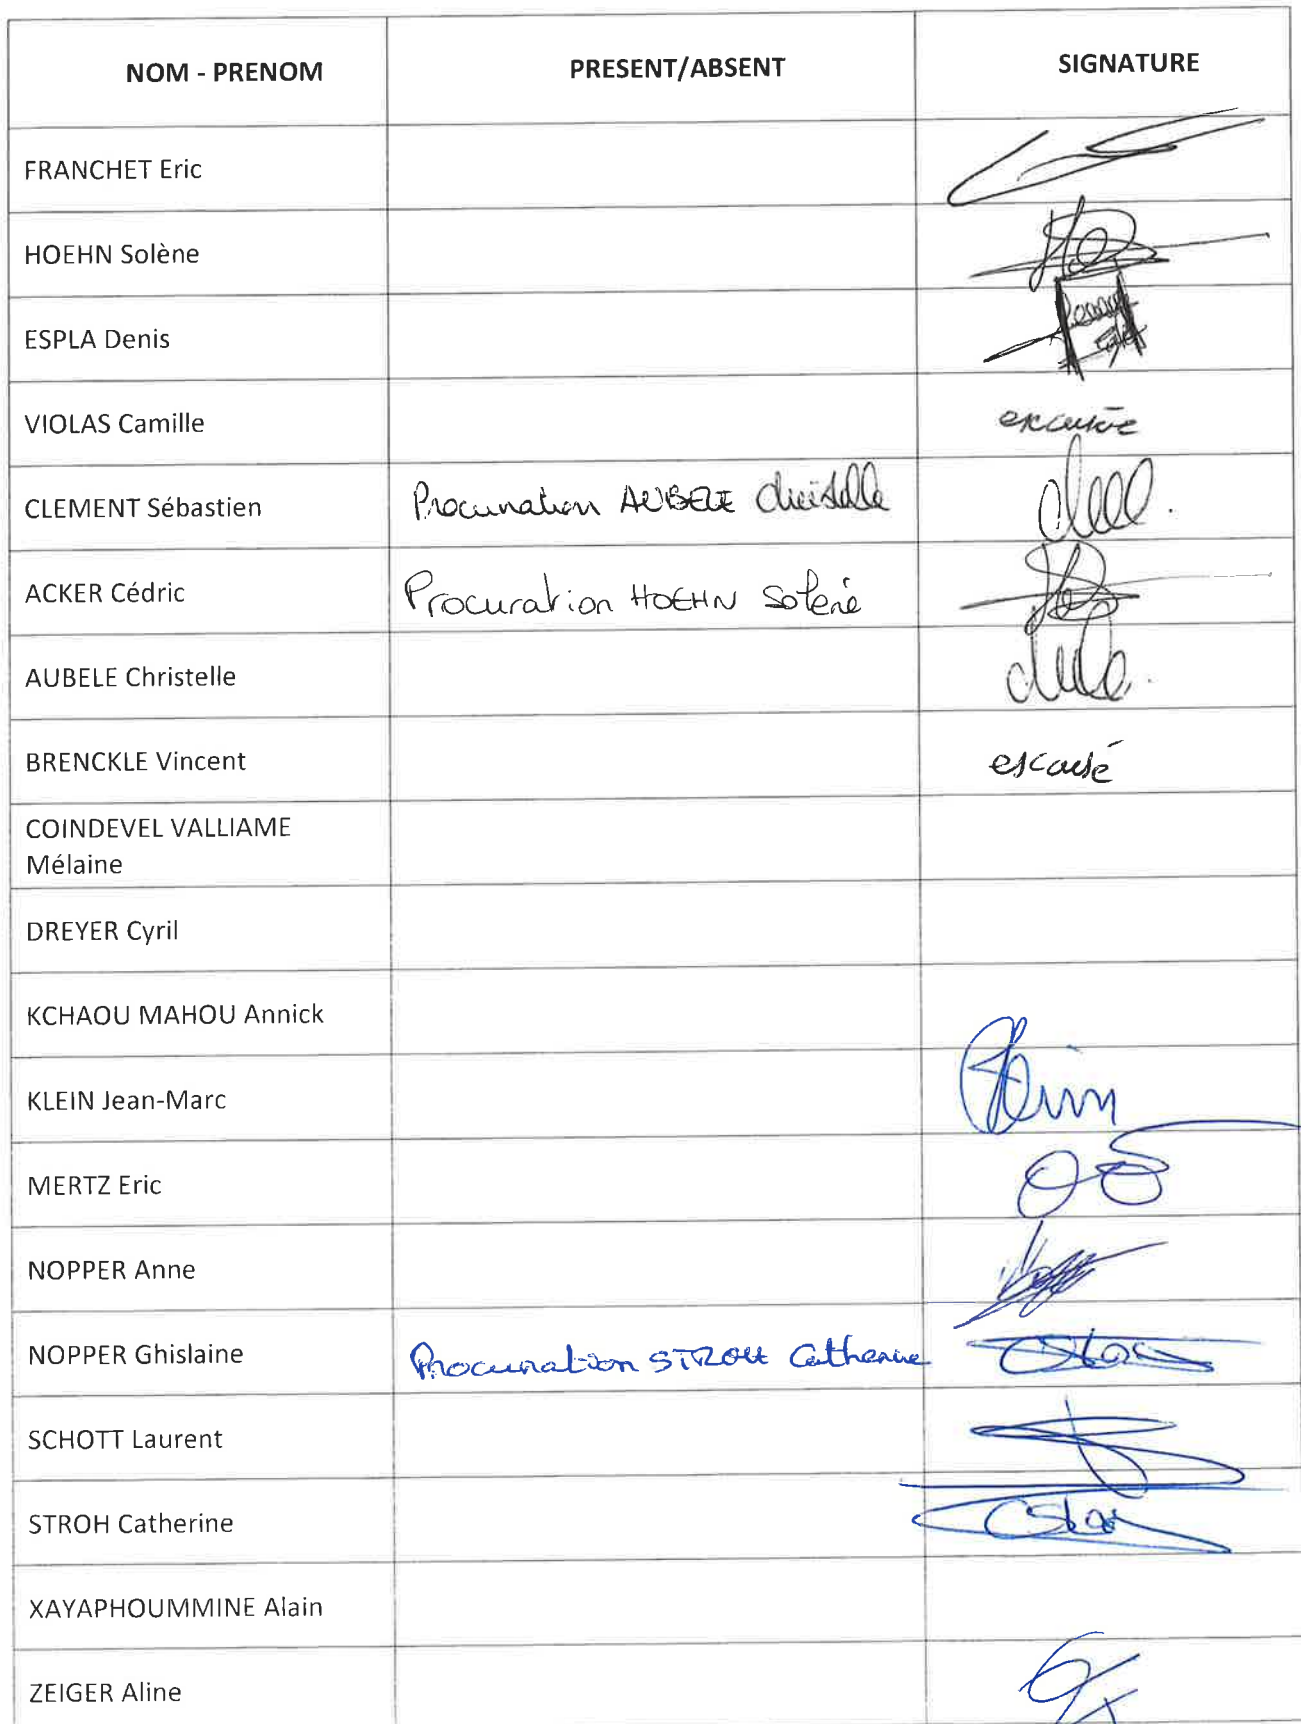 NOM - PRENOM PRESENT/ABSENT SIGNATURE
FRANCHET Eric
HOEHN Solène
ESPLA Denis
VIOLAS Camille excusée
CLEMENT Sébastien Procuration AUBELE Christelle
ACKER Cédric Procuration HOEHN Solène
AUBELE Christelle
BRENCKLE Vincent excusé
COINDEVEL VALLIAME
Mélaine
DREYER Cyril
KCHAOU MAHOU Annick
KLEIN Jean-Marc
MERTZ Eric
NOPPER Anne
NOPPER Ghislaine Procuration STROH Catherine
SCHOTT Laurent
STROH Catherine
XAYAPHOUMMINE Alain
ZEIGER Aline